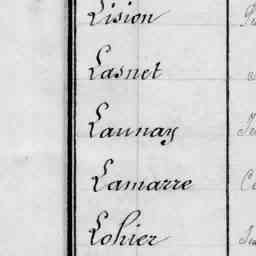 Lision
Lasnet
Launay
Lamarre
Lohier